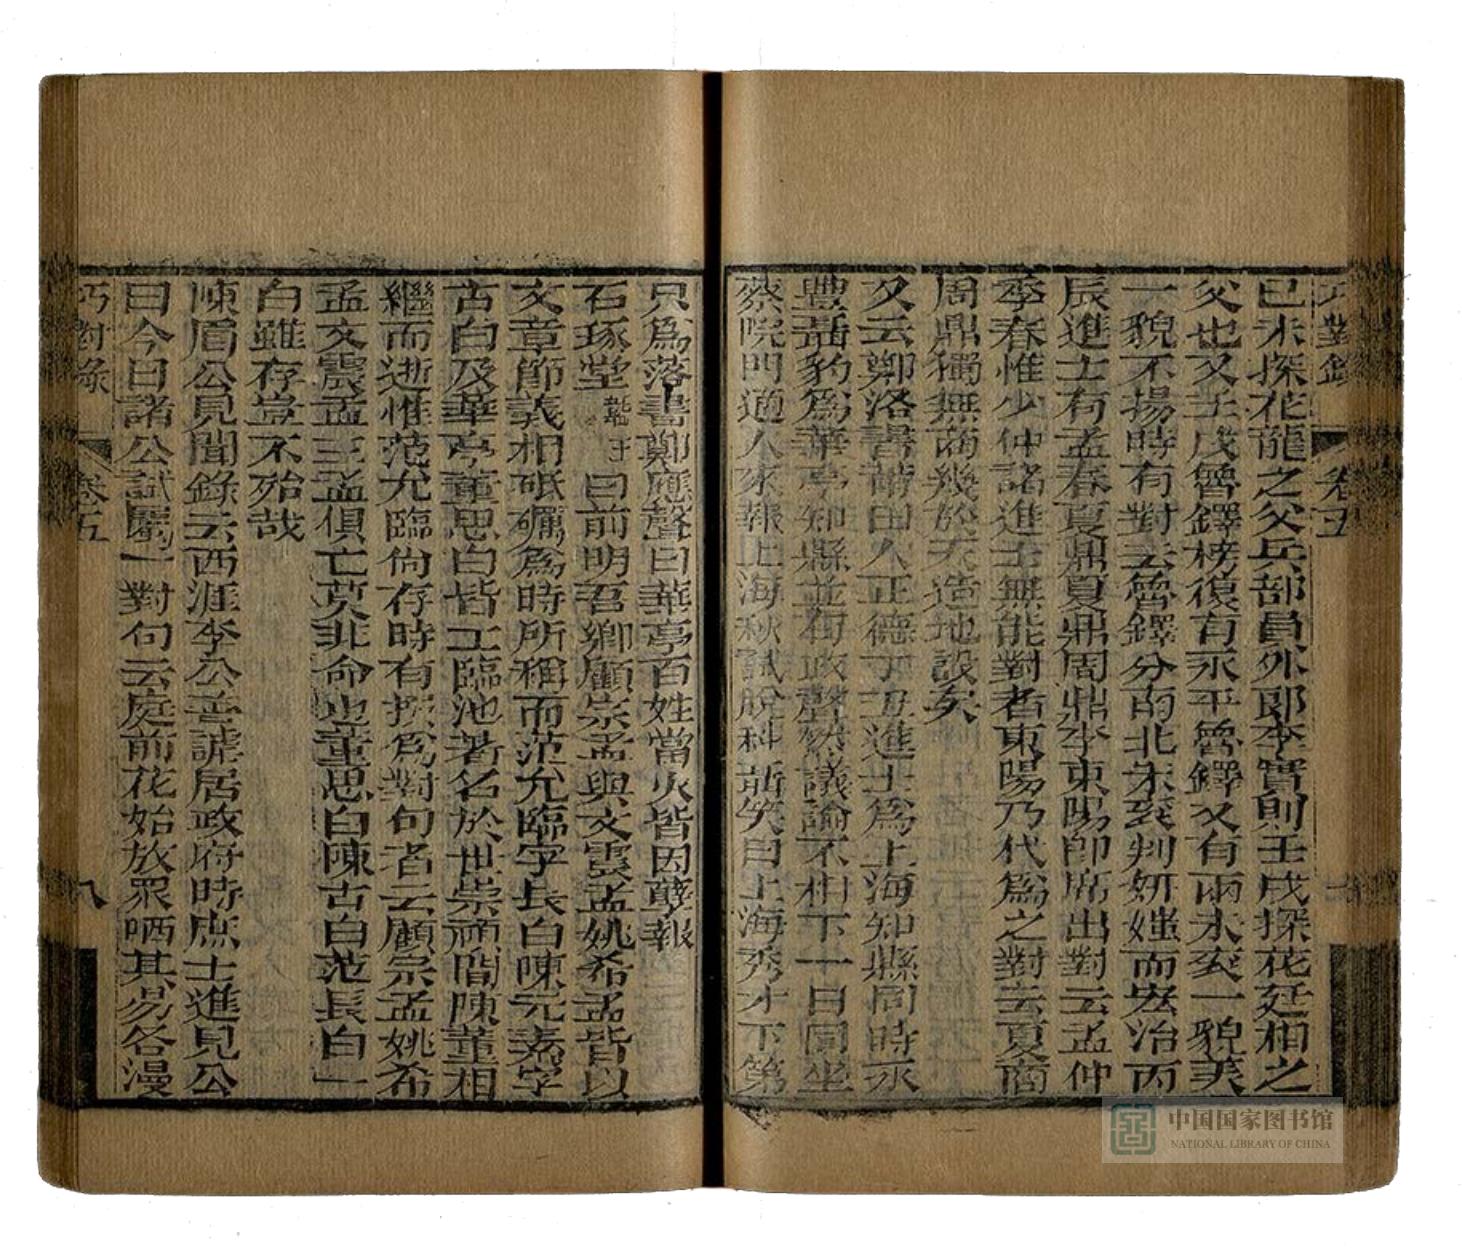 巧對錄 卷五
己未探花龍之父兵部員外郎李實則壬戌探花廷相之
父也又壬戌魯鐸榜復有永平魯鐸又有兩朱袞一貌美
一貌不揚時有對云魯鐸分南北朱袞判妍媸而宏治丙
辰進士有孟春夏鼎夏鼎周鼎李東陽即席出對云孟仲
季春惟少仲諸進士無能對者東陽乃代爲之對云夏商
周鼎獨無商幾於天造地設矣
又云鄭洛書莆田人正德丁丑進士爲上海知縣同時永
豐聶豹爲華亭知縣並有政聲然議論不相下一日同坐
察院門適人家報上海秋試脫科聶笑曰上海秀才下第
只爲落書鄭應聲曰華亭百姓當火皆因孽報
石琢堂
曰前明吾鄉顧宗孟與文震孟姚希孟皆以
文章節義相砥礪爲時所稱而范允臨字長白陳元素字
古白及華亭董思白皆工臨池著名於世崇禎間陳董相
繼而逝惟范允臨尙存時有撰爲對句者云顧宗孟姚希
孟文震孟三孟俱亡莫非命也董思白陳古白范長白一
白雖存豈不殆哉
陳眉公見聞錄云西涯李公善謔居政府時庶士進見公
曰今日諸公試屬一對句云庭前花始放眾哂其易各漫
巧對錄 卷五 八